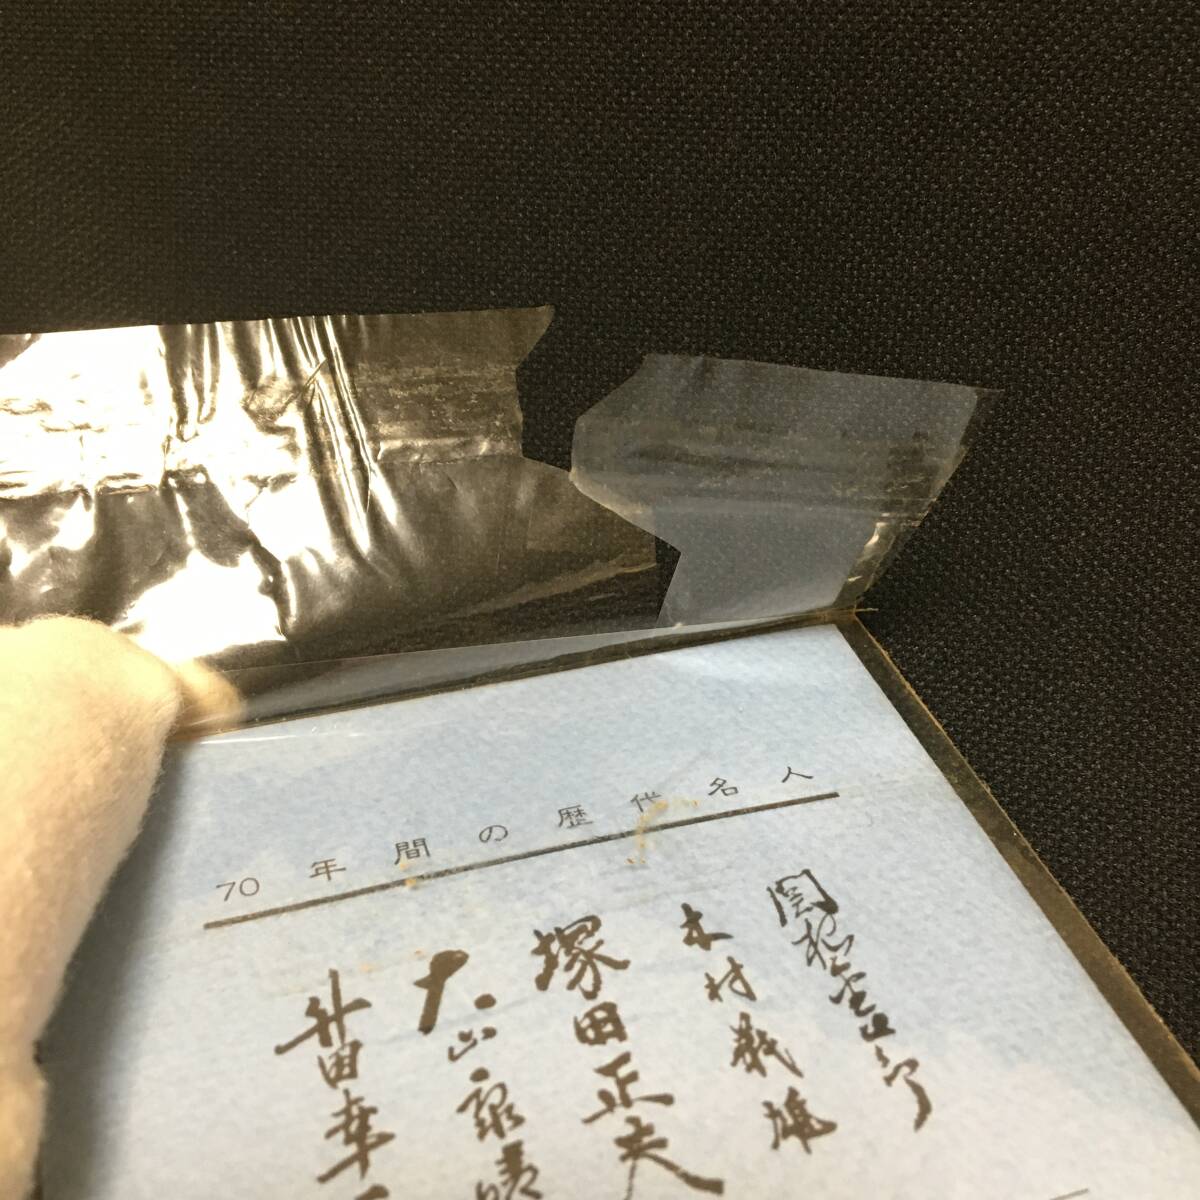 70年間の歴代名人
関根金次郎
木村義雄
塚田正夫
大山康晴
升田幸